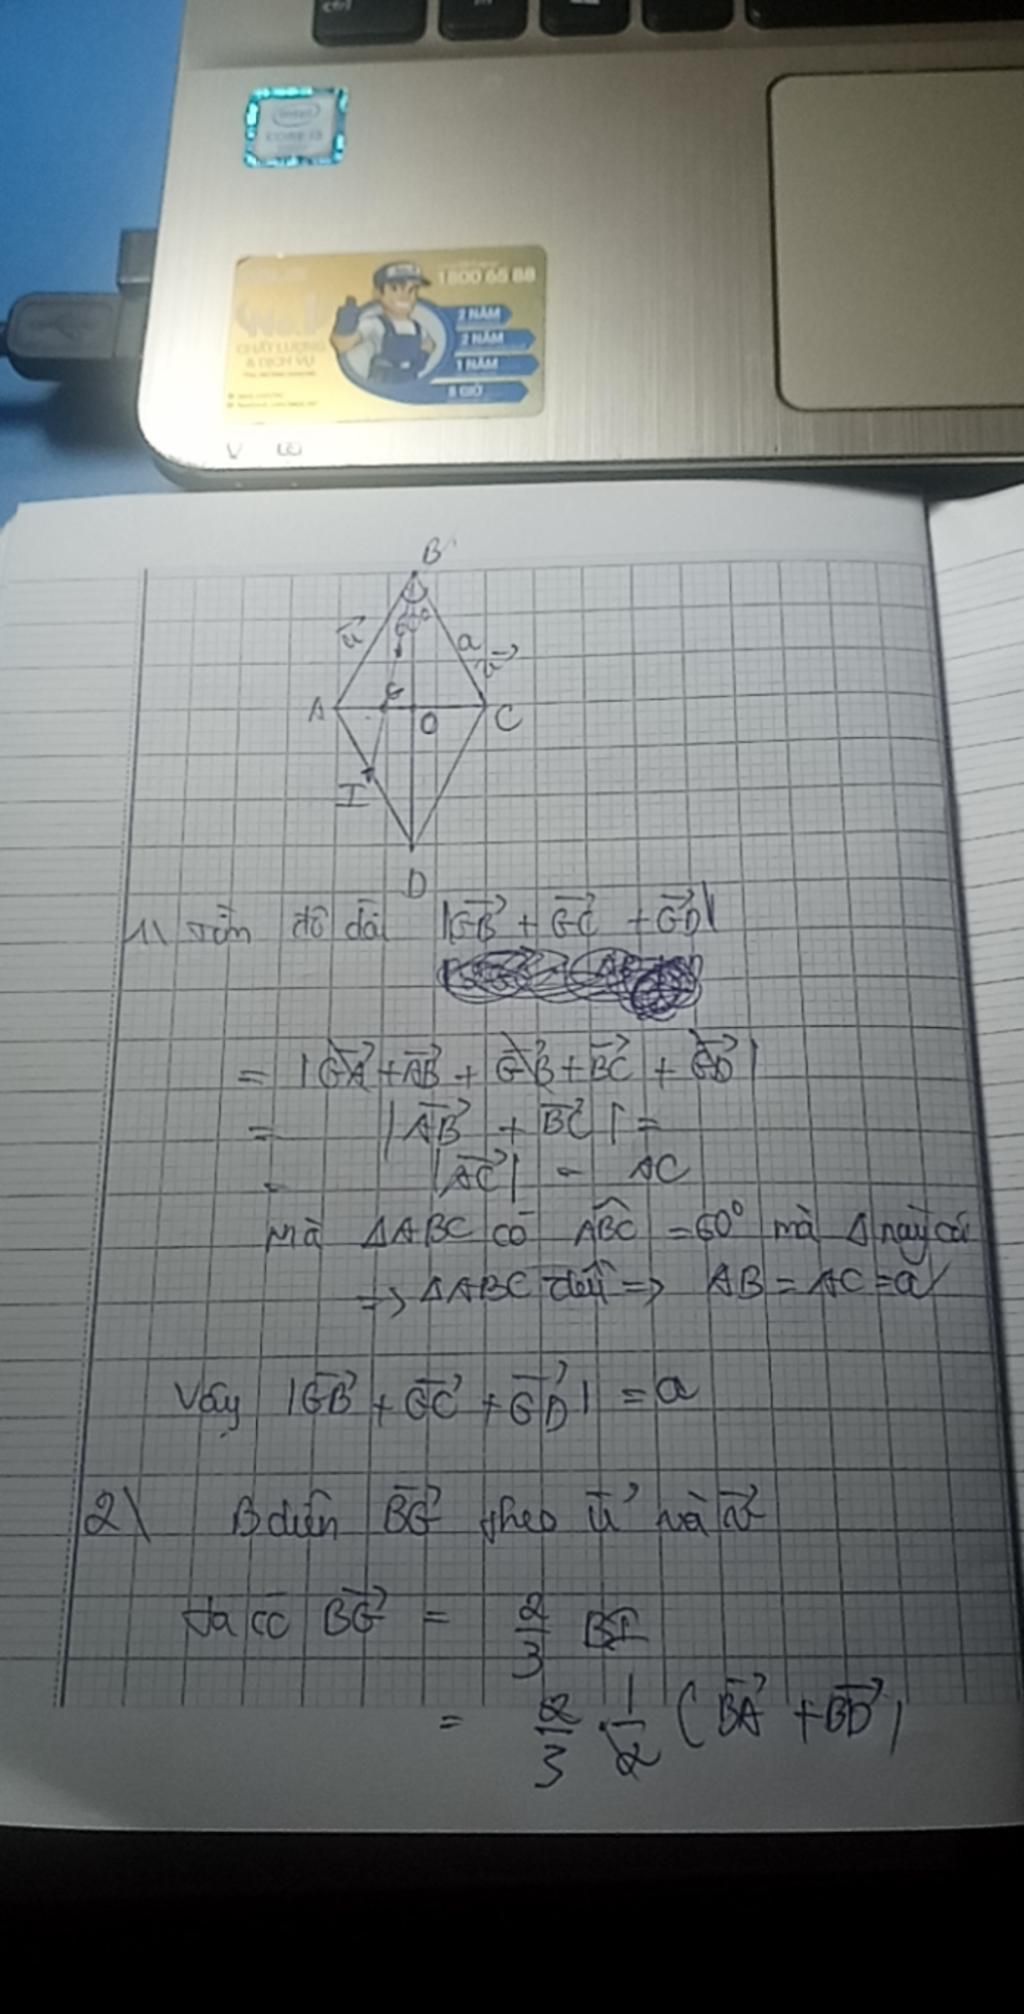 ctrl
intel
CORE i3
1800 65 88
No.1
CHẤT LƯỢNG
& DỊCH VỤ
2 NĂM
2 NĂM
1 NĂM
8 GIỜ
B
60°
u⃗
a
v⃗
G
A
O
C
I
D
1\ Tìm độ dài |GB⃗ + GC⃗ + GD⃗|
= |GA⃗ + AB⃗ + GB⃗ + BC⃗ + GD⃗|
= |AB⃗ + BC⃗| =
= |AC⃗| = AC
Mà ΔABC có ABC = 60° mà Δ này cân
=> ΔABC đều => AB = AC = a
Vậy |GB⃗ + GC⃗ + GD⃗| = a
2\ B diễn BG⃗ theo u⃗ và v⃗
Ta có BG⃗ = 2/3 BI
= 2/3 . 1/2 (BA⃗ + BD⃗)